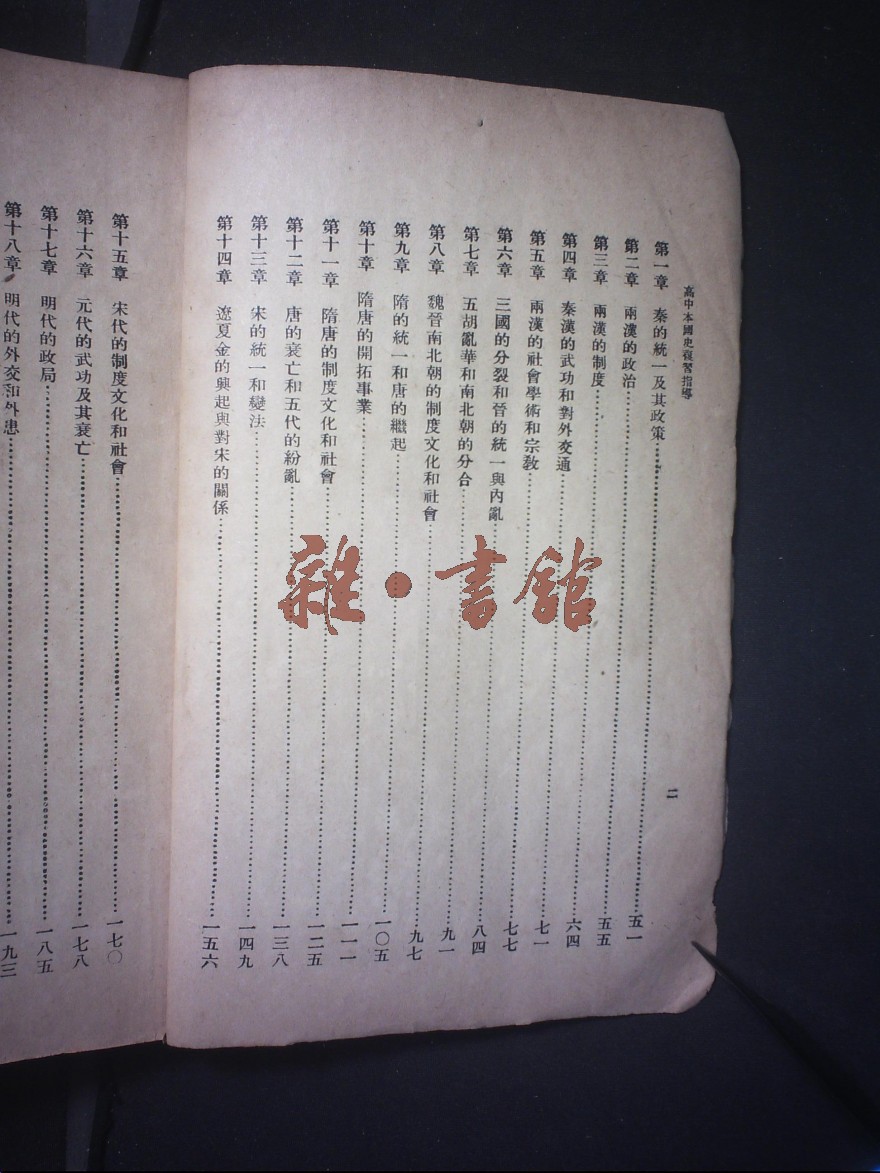 高中本國史復習指導
二
第一章 秦的統一及其政策……五一
第二章 兩漢的政治……五五
第三章 兩漢的制度……六四
第四章 秦漢的武功和對外交通……七一
第五章 兩漢的社會學術和宗教……七七
第六章 三國的分裂和晉的統一與內亂……八四
第七章 五胡亂華和南北朝的分合……九一
第八章 魏晉南北朝的制度文化和社會……九七
第九章 隋的統一和唐的繼起……一〇五
第十章 隋唐的開拓事業……一一一
第十一章 隋唐的制度文化和社會……一二五
第十二章 唐的衰亡和五代的紛亂……一三八
第十三章 宋的統一和變法……一四九
第十四章 遼夏金的興起與對宋的關係……一五六
第十五章 宋代的制度文化和社會……一七〇
第十六章 元代的武功及其衰亡……一七八
第十七章 明代的政局……一八五
第十八章 明代的外交和外患……一九三
雜·書館